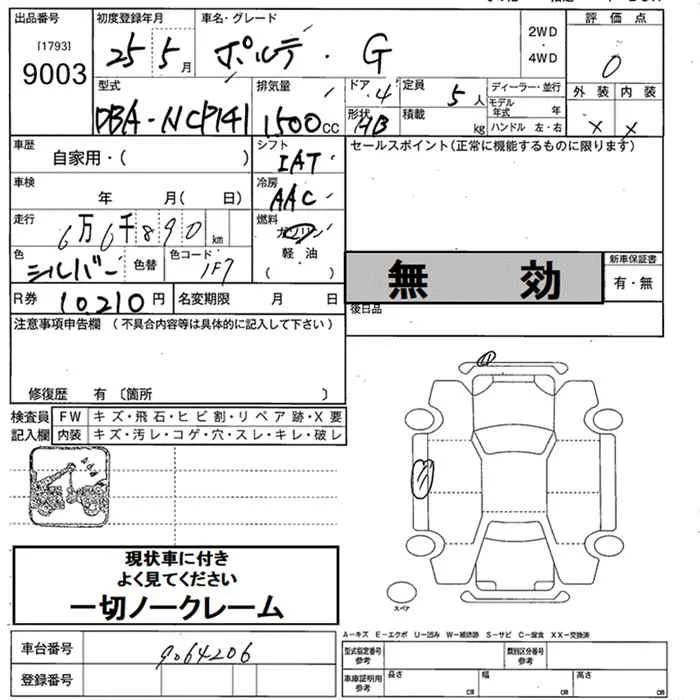 出品番号
[1793]
9003
初度登録年月
25 5月
車名・グレード
ポルテ G
2WD
・
4WD
評価点
0
外装 内装
× ×
型式
DBA-NCP141
排気量
1500cc
ドア 4
形状 HB
定員
5人
積載
kg
ディーラー・並行
モデル年式 年
ハンドル 左・右
車歴
自家用・( )
シフト
IAT
車検
年 月( 日)
冷房
AAC
走行
6万6千890km
燃料
ガソリン
軽油
( )
色
シルバー
色替
色コード
1F7
R券 10,210円
名変期限 月 日
セールスポイント(正常に機能するものに限ります)
無 効
新車保証書
有・無
後日品
注意事項申告欄 (不具合内容等は具体的に記入して下さい)
修復歴 有 〔箇所 〕
検査員記入欄
FW キズ・飛石・ヒビ割・リペア跡・X要
内装 キズ・汚レ・コゲ・穴・スレ・キレ・破レ
現状車に付き
よく見てください
一切ノークレーム
スペア
A-キズ E-エクボ U-凹み W-補修跡 S-サビ C-腐食 XX-交換済
車台番号
9064206
登録番号
型式指定番号
参考
類別区分番号
参考
車庫証明用
参考
長さ
cm
幅
cm
高さ
cm